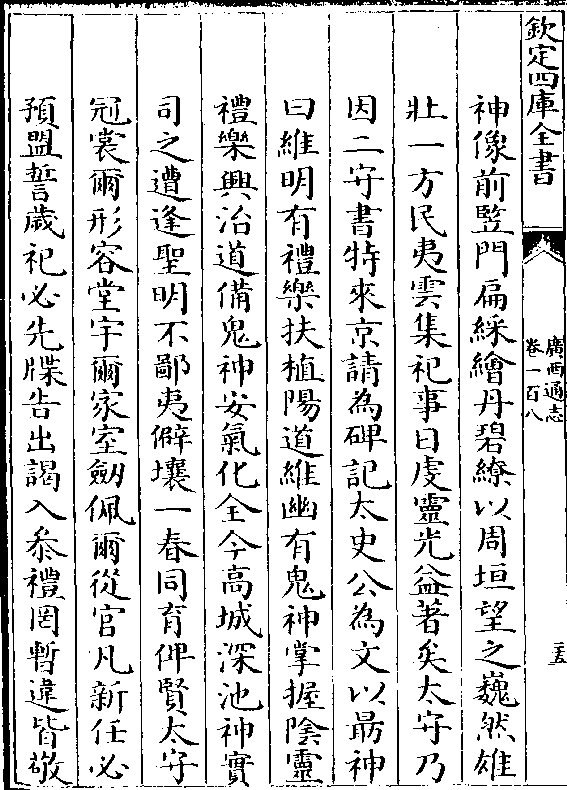 欽定四庫全書
廣西通志
卷一百八
二五
神像前竪門扁綵繪丹碧繚以周垣望之巍然雄
壯一方民夷雲集祀事日虔靈光益著矣太守乃
因二守書特來京請為碑記太史公為文以勗神
曰維明有禮樂扶植陽道維幽有鬼神掌握陰靈
禮樂興治道備鬼神安氣化全今高城深池神實
司之遭逢聖明不鄙夷僻壤一春同育俾賢太守
冠裳爾形容堂宇爾家室劒佩爾從官凡新任必
預盟誓歲祀必先牒告出謁入叅禮罔暫違皆敬